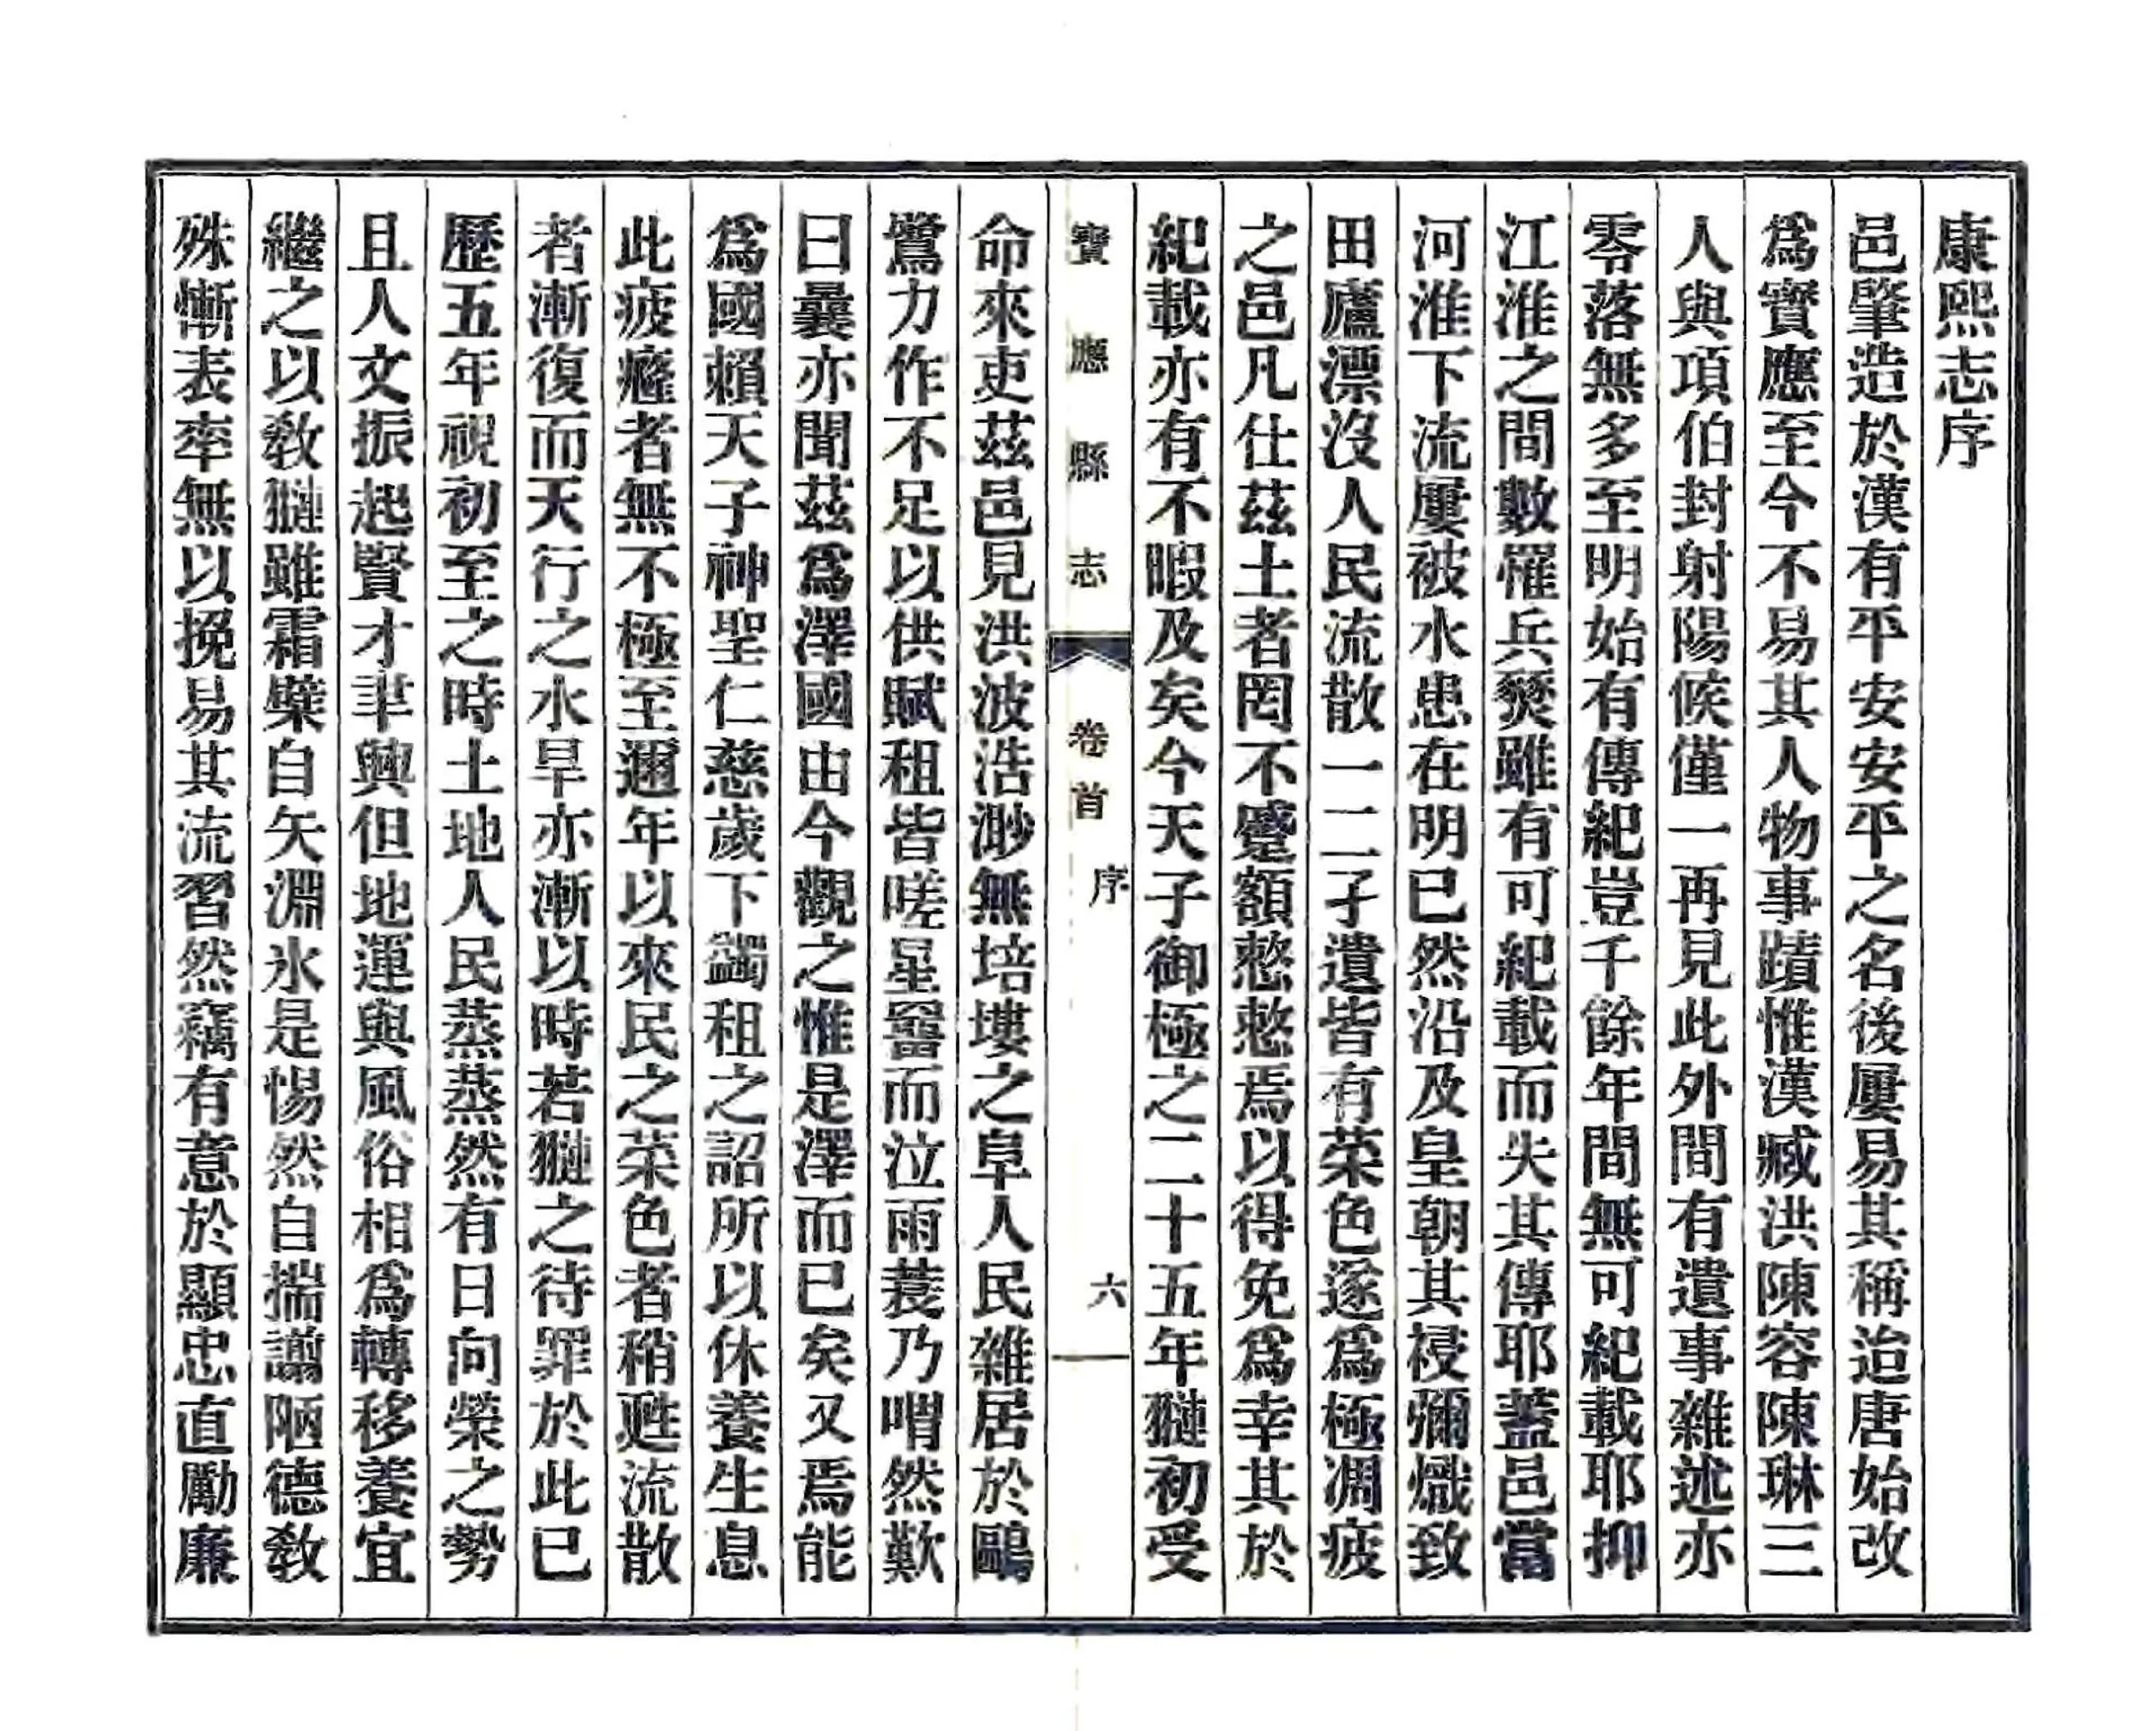 康熙志序
邑肇造於漢有平安安平之名後屢易其稱迨唐始改
爲寶應至今不易其人物事蹟惟漢臧洪陳容陳琳三
人與項伯封射陽候僅一再見此外間有遺事雜述亦
零落無多至明始有傳紀豈千餘年間無可紀載耶抑
江淮之間數罹兵燹雖有可紀載而失其傳耶蓋邑當
河淮下流屢被水患在明已然沿及皇朝其祲彌熾致
田廬漂沒人民流散一二孑遺皆有菜色遂爲極凋疲
之邑凡仕茲土者罔不蹙額愁愁焉以得免爲幸其於
紀載亦有不暇及矣今天子御極之二十五年㺦初受
寶應縣志 卷首 序 六
命來吏茲邑見洪波浩渺無培塿之阜人民雜居於鷗
鷺力作不足以供賦租皆嗟星罶而泣雨蓑乃喟然歎
曰曩亦聞茲爲澤國由今觀之惟是澤而已矣又焉能
爲國賴天子神聖仁慈歲下蠲租之詔所以休養生息
此疲癃者無不極至邇年以來民之菜色者稍甦流散
者漸復而天行之水旱亦漸以時若㺦之待罪於此已
歷五年視初至之時土地人民蒸蒸然有日向榮之勢
且人文振起賢才聿興但地運與風俗相爲轉移養宜
繼之以敎㺦雖霜檗自矢淵氷是惕然自揣謭陋德敎
殊慚表率無以挽易其流習然竊有意於顯忠直勵廉